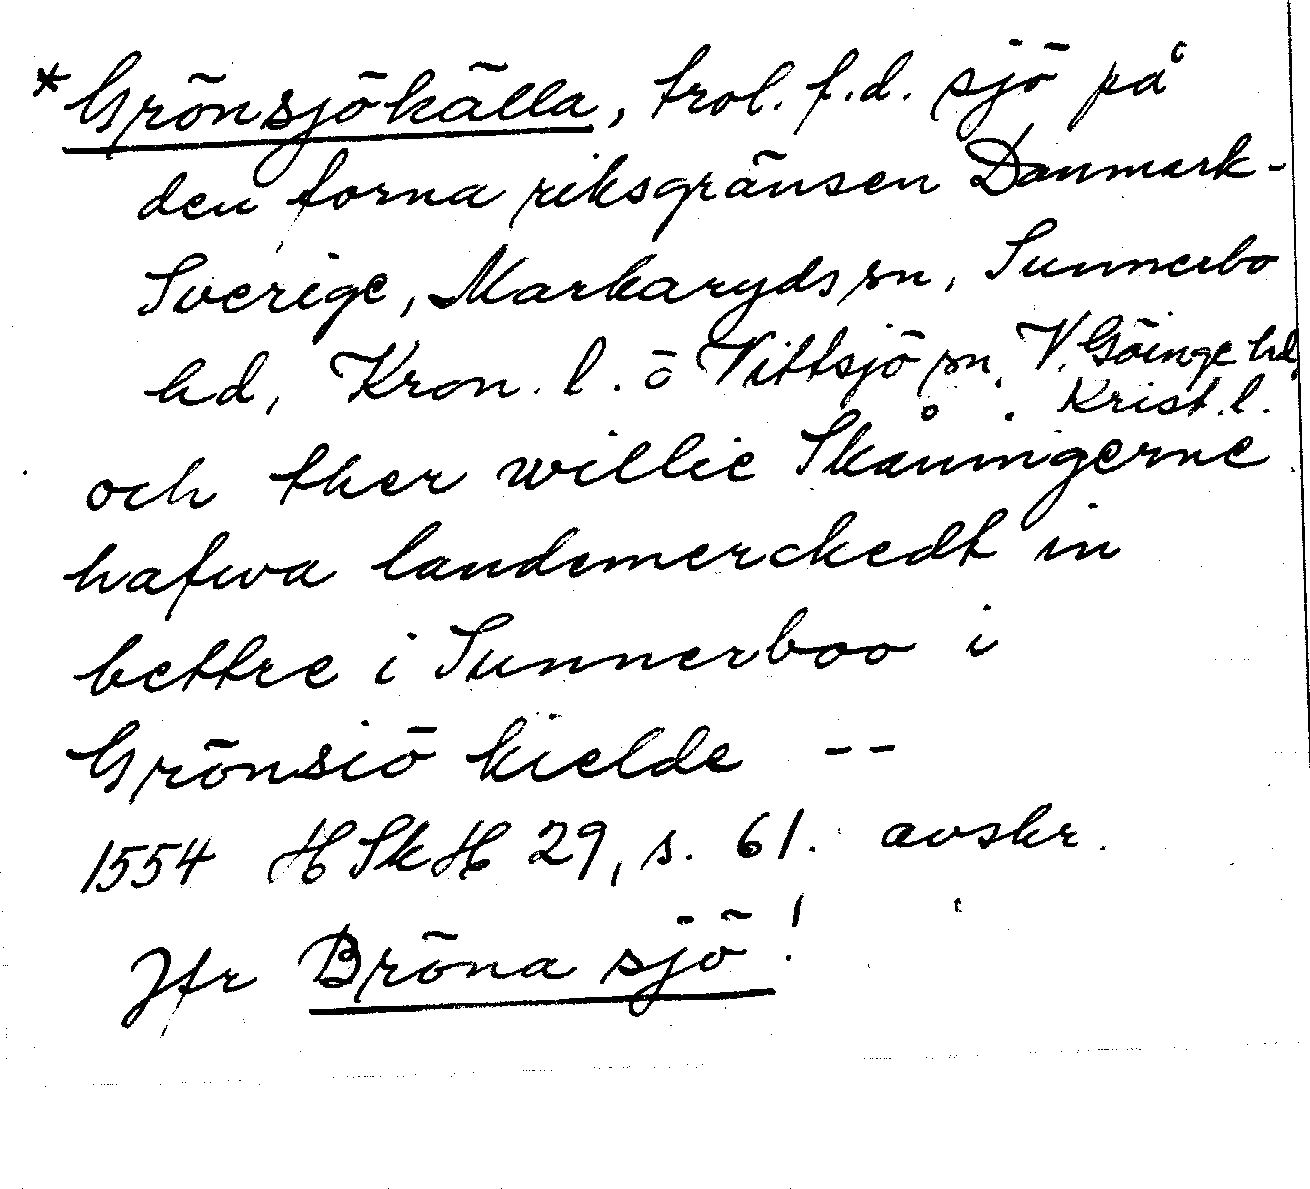 *Grönsjökälla, trol. f.d. sjö på
den forna riksgränsen Danmark-
Sverige, Markaryds sn, Sunnerbo
hd, Kron. l. o Vittsjö sn, V. Göinge hd,
Krist. l.
och ther willie Skåningerne
hafwa landemerckedt in
bettre i Sunnerboo i
Grönsiö kielde --
1554 HSkH 29, s. 61. avskr.
Jfr Bröna sjö!